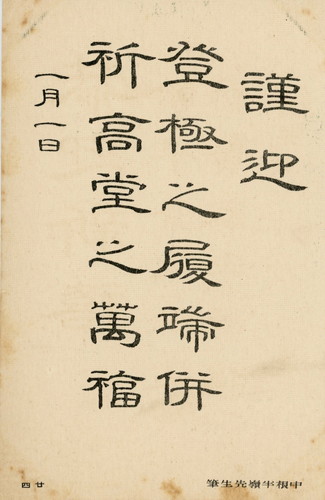 謹迎
登極之履端併
祈高堂之萬福
一月一日
中根半嶺先生筆
廿四